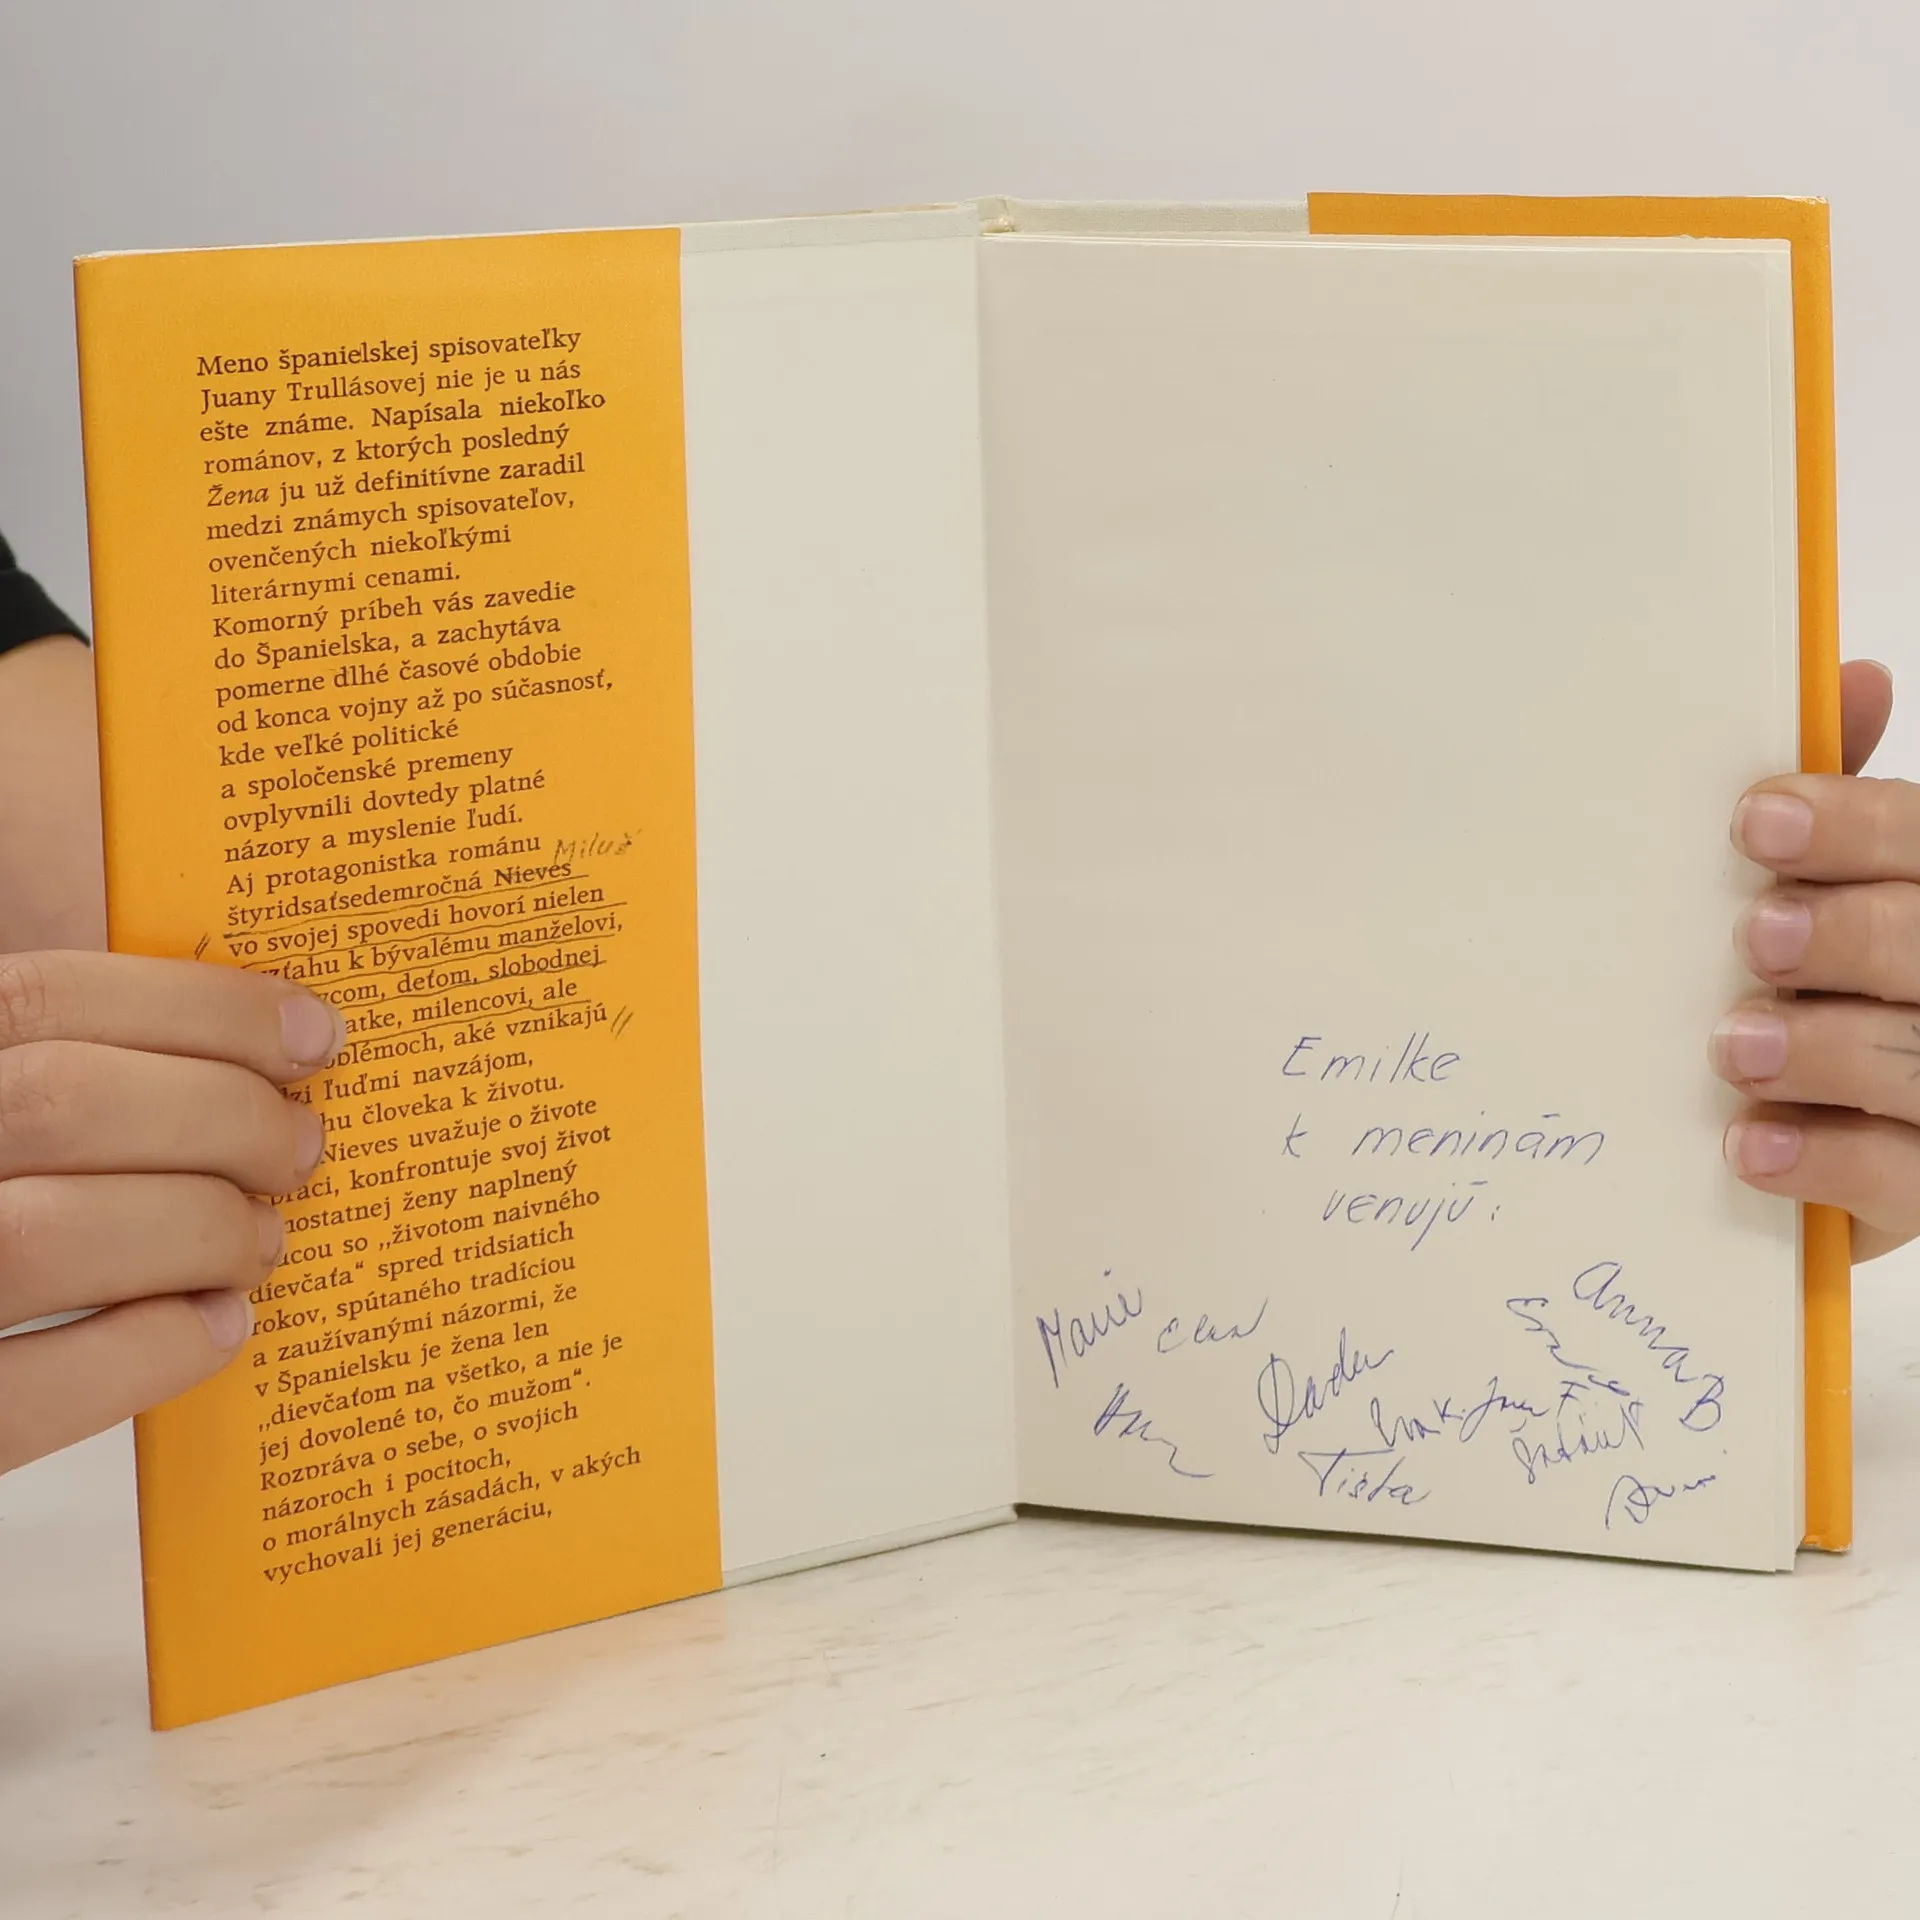 Meno španielskej spisovateľky
Juany Trullásovej nie je u nás
ešte známe. Napísala niekoľko
románov, z ktorých posledný
Žena ju už definitívne zaradil
medzi známych spisovateľov,
ovenčených niekoľkými
literárnymi cenami.
Komorný príbeh vás zavedie
do Španielska, a zachytáva
pomerne dlhé časové obdobie
od konca vojny až po súčasnosť,
kde veľké politické
a spoločenské premeny
ovplyvnili dovtedy platné
názory a myslenie ľudí.
Aj protagonistka románu
Miluš
štyridsaťsedemročná Nieves
vo svojej spovedi hovorí nielen
zťahu k bývalému manželovi,
com, deťom, slobodnej
atke, milencovi, ale
oblémoch, aké vznikajú
dzi ľuďmi navzájom,
hu človeka k životu.
Nieves uvažuje o živote
práci, konfrontuje svoj život
mostatnej ženy naplnený
cou so „životom naivného
dievčaťa“ spred tridsiatich
rokov, spútaného tradíciou
a zaužívanými názormi, že
v Španielsku je žena len
„dievčaťom na všetko, a nie je
jej dovolené to, čo mužom“.
Rozpráva o sebe, o svojich
názoroch i pocitoch,
o morálnych zásadách, v akých
vychovali jej generáciu,
Emilke
k meninám
venujú:
Marie
Anna B
Tista